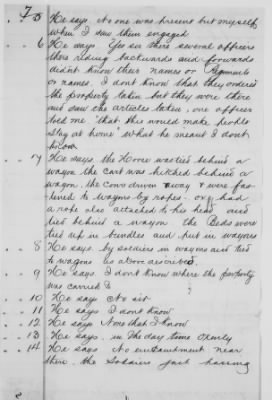 7
. . 5 He says No one was present but myself
when I saw them engaged
. . 6 He says Yes sir there several officers
there riding backwards and forwards
didn't know their names or Regiments
or names. I don't know that they ordered
the property taken but they were there
and saw the articles taken, one officer
told me "that this would make people
stay at home" what he meant I dont
know
. . 7 He says the Horse was tied behind a
wagon the cart was hitched behind a
wagon. the cows driven away & were fas-
tened to wagons by ropes. oxy had
a rope also attached to his head and
tied behind a wagon the Beds were
tied up in bundles and put in wagons
. . 8 He says by soldiers in wagons and tied
to wagons as above described.
. . 9 He says I dont know where the property
was carried to
. . 10 He says No sir
. . 11 He says I dont know
. . 12 He says None that I know
. . 13 He says, in the day time Openly
. . 14 He says No encampment near
there, the Soldiers just having